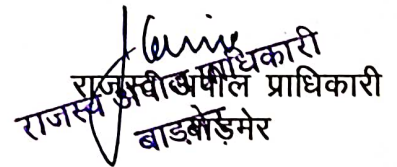 राजस्व अपील प्राधिकारी
राजस्व अपील प्राधिकारी
बाड़मेर